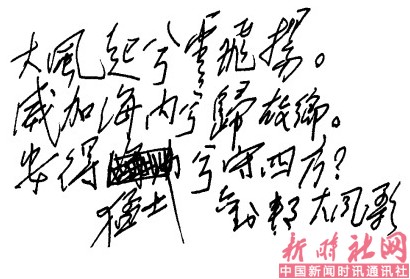 大風起兮雲飛揚。
威加海内兮歸故鄉。
安得猛士兮守四方？
劉邦大風歌
新时社网
中国新闻时讯通讯社